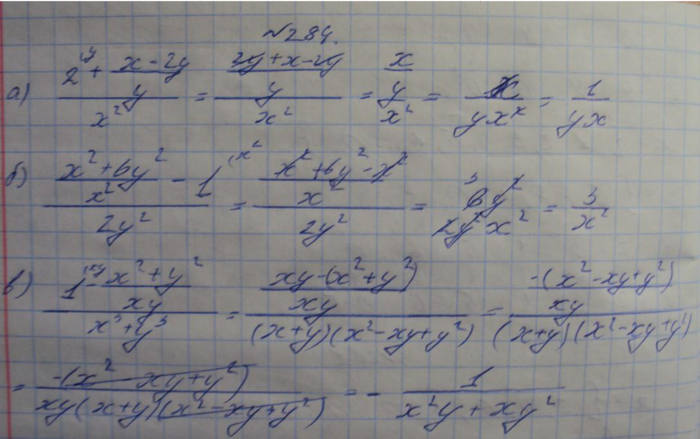 №284.
а) (2^{(y} + (x-2y)/y)/x² = ((2y+x-2y)/y)/x² = (x/y)/x² = x/(yx²) = 1/(yx)
б) ((x²+6y²)/x² - 1^{(x²})/(2y²) = ((x²+6y²-x²)/x²)/(2y²) = ³6y²/(2y²x²) = 3/x²
в) (1^{(xy} - (x²+y²)/(xy))/(x³+y³) = ((xy-(x²+y²))/(xy))/((x+y)(x²-xy+y²)) = (-(x²-xy+y²)/(xy))/((x+y)(x²-xy+y²))
= -(x²-xy+y²)/(xy(x+y)(x²-xy+y²)) = - 1/(x²y+xy²)